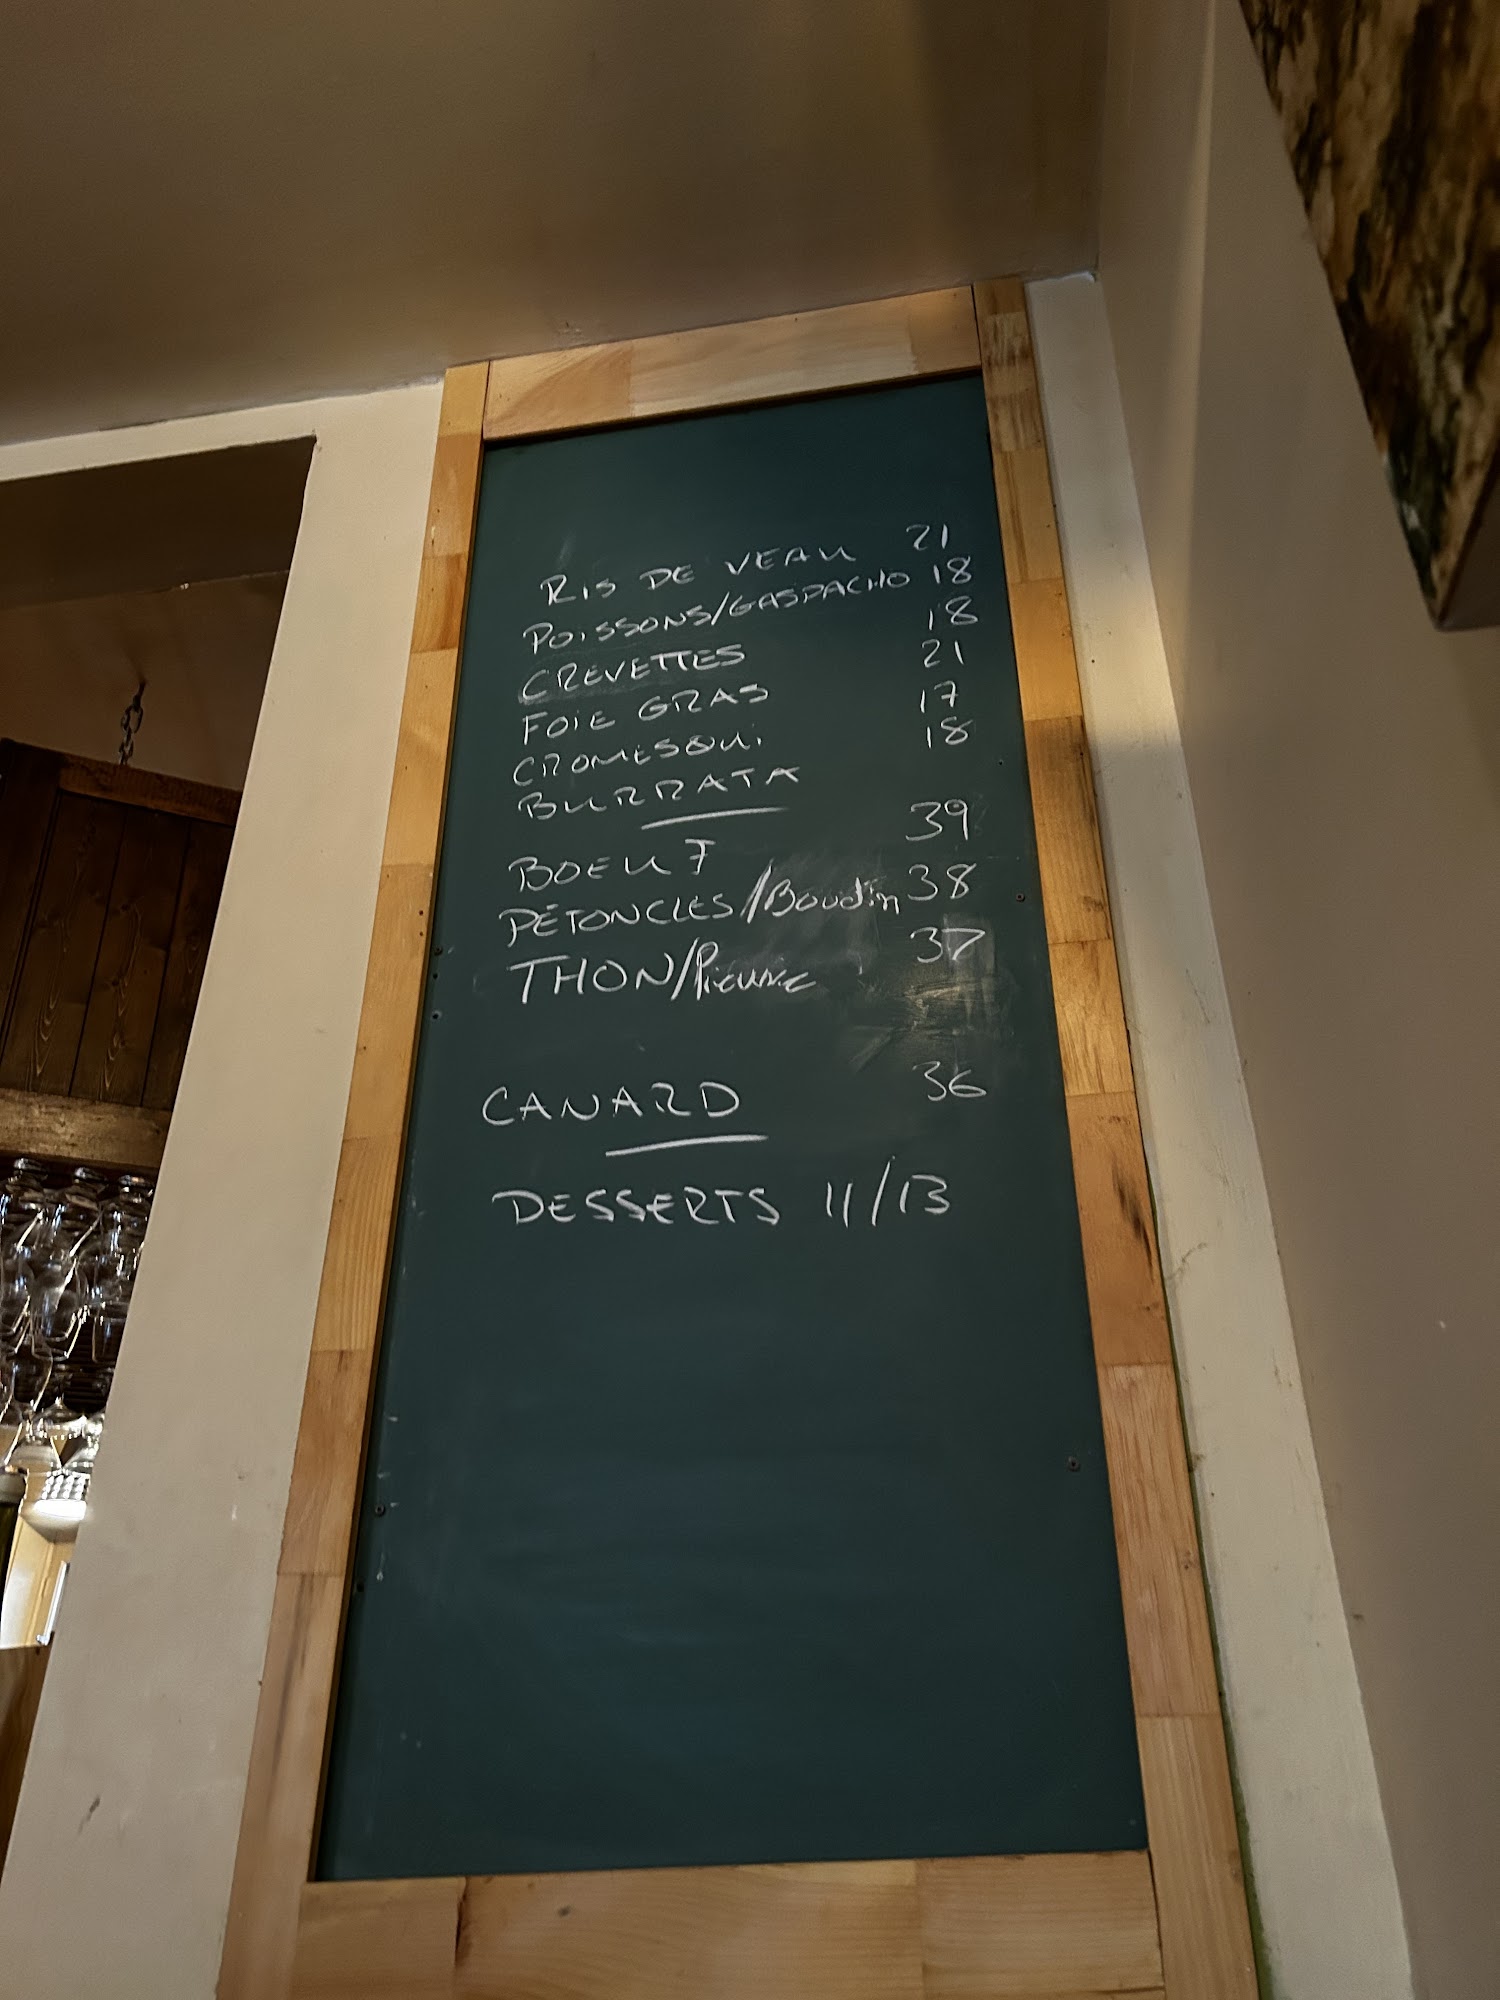 RIS DE VEAU 21
POISSONS/GASPACHO 18
CREVETTES 18
FOIE GRAS 21
CROMESQUI 17
BURRATA 18
BOEUF 39
PÉTONCLES/Boudin 38
THON/Pieuvre 37
CANARD 36
DESSERTS 11/13